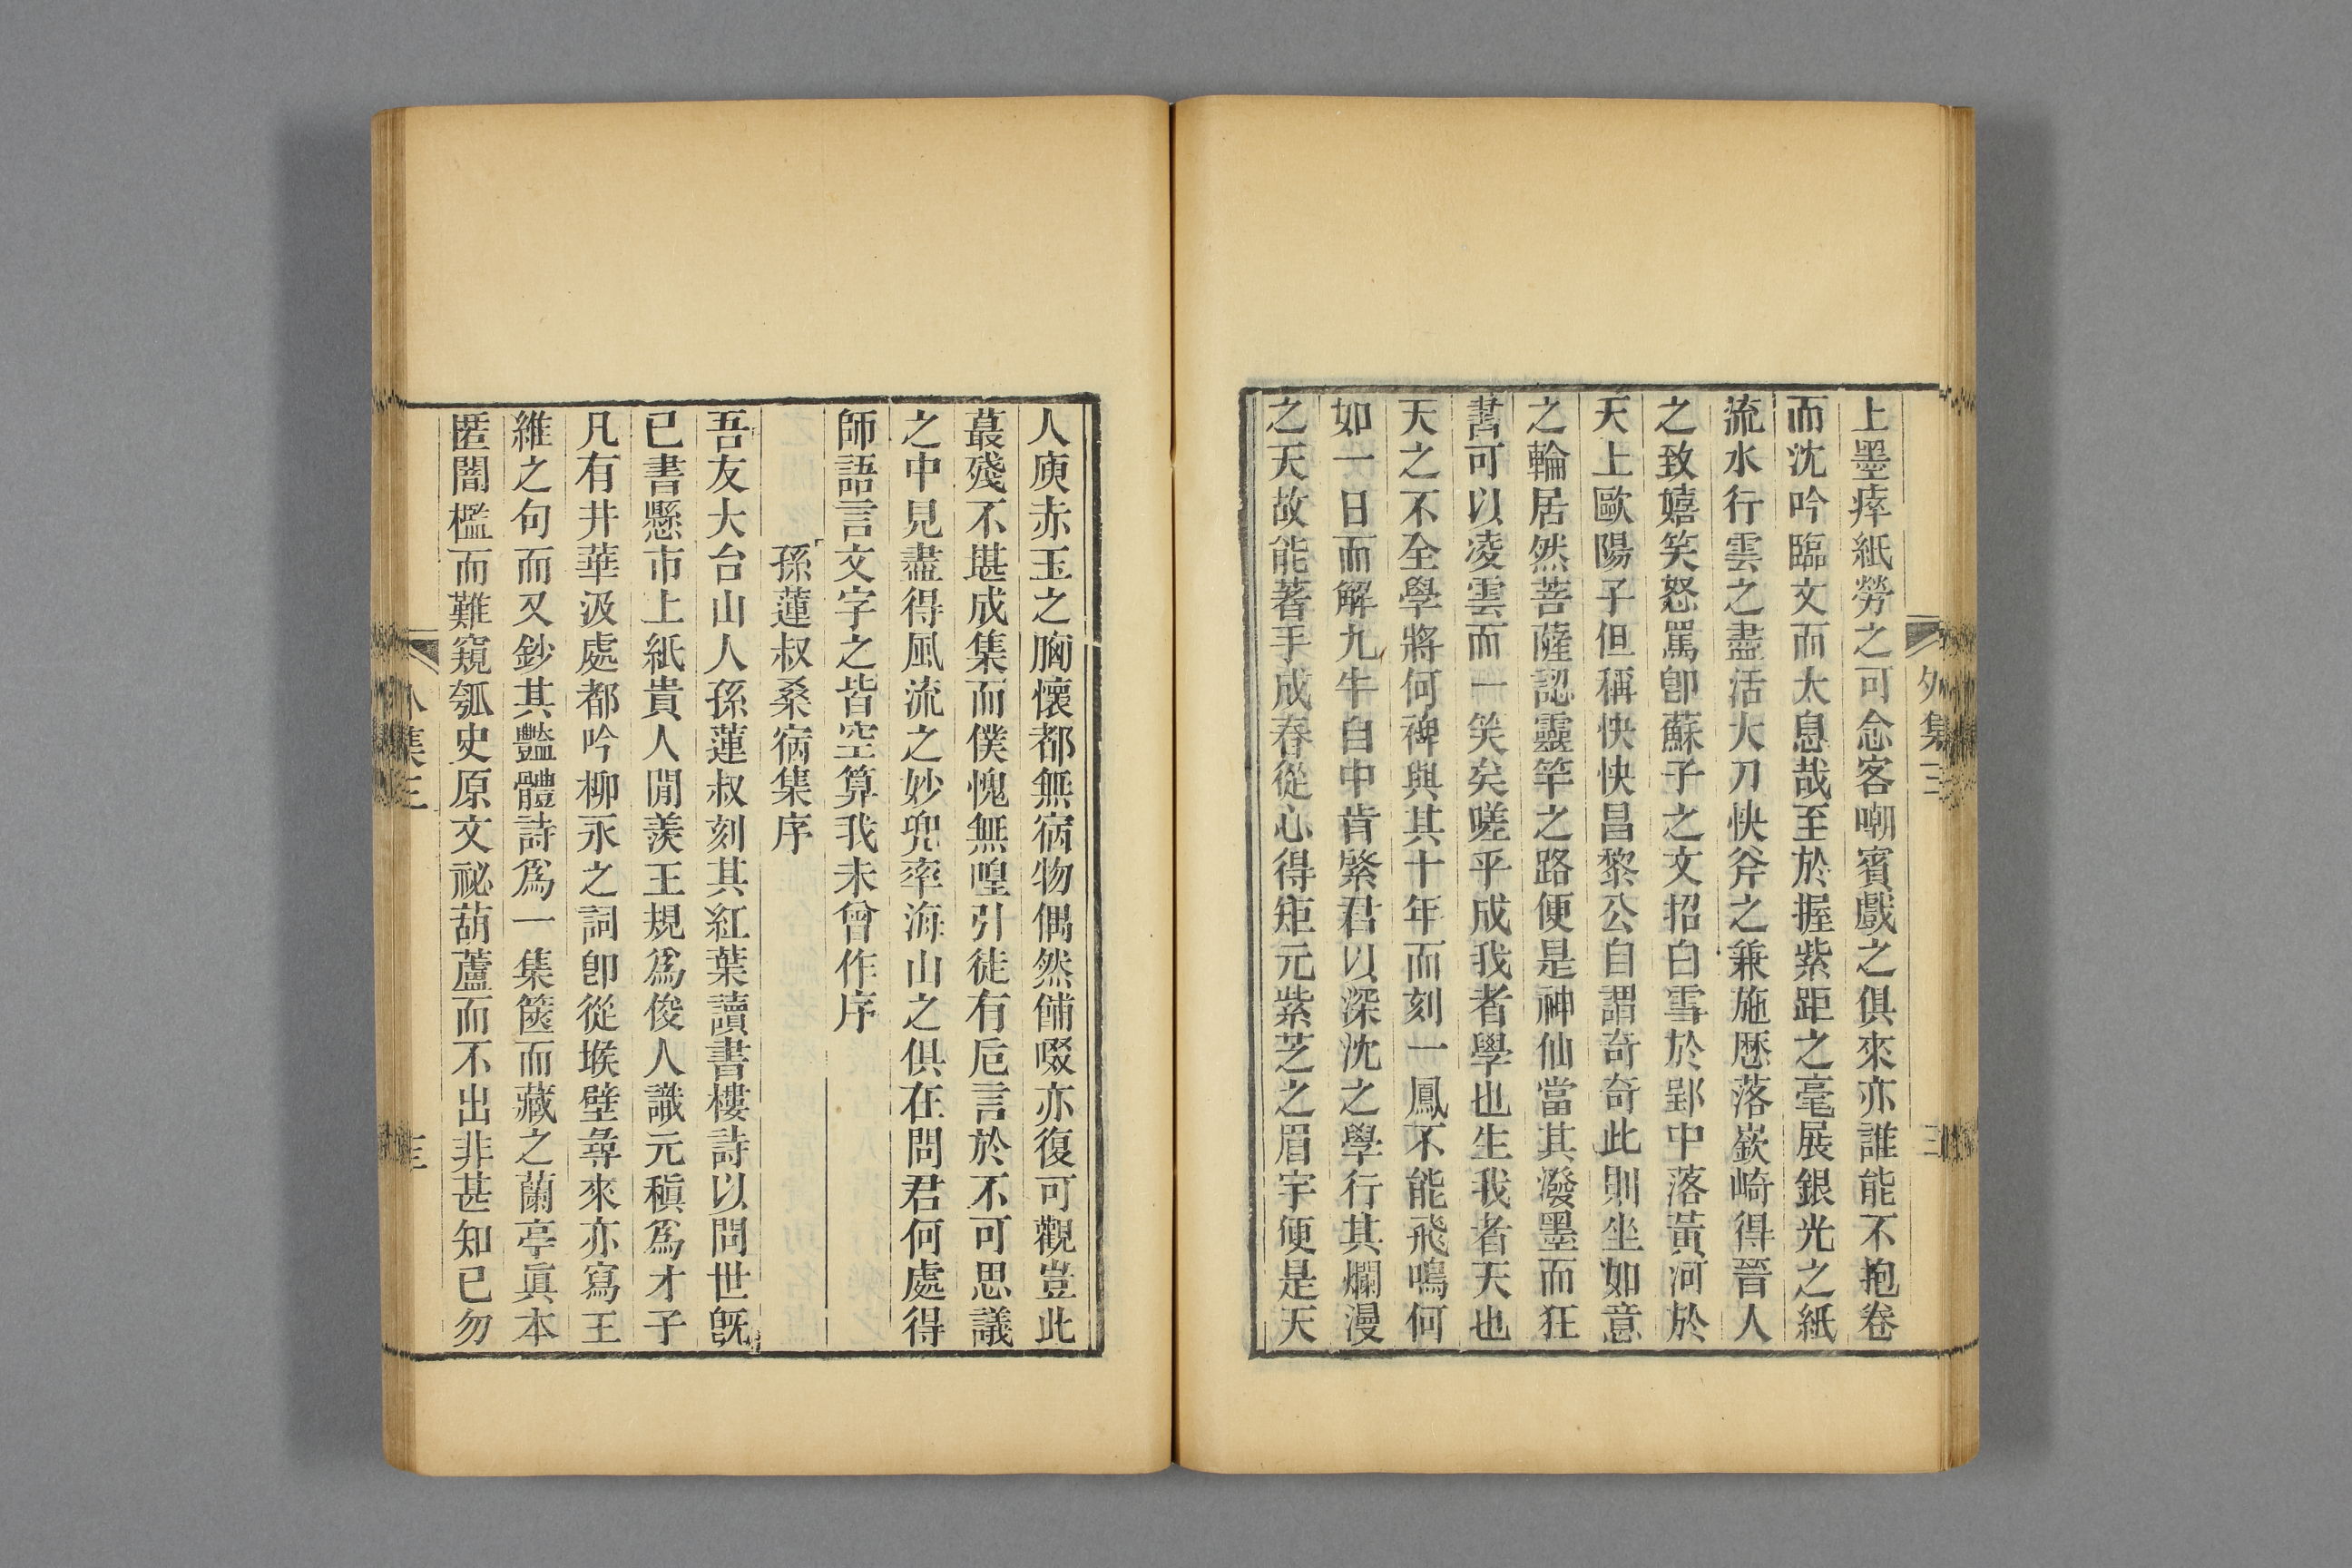 上墨瘁紙勞之可念客嘲賓戲之俱來亦誰能不抱卷
而沈吟臨文而太息哉至於握紫距之毫展銀光之紙
流水行雲之盡活大刀快斧之兼施歷落嶔崎得晉人
之致嬉笑怒罵卽蘇子之文招白雪於郢中落黃河於
天上歐陽子但稱快快昌黎公自謂奇奇此則坐如意
之輪居然菩薩認靈竿之路便是神仙當其潑墨而狂
書可以凌雲而一笑矣嗟乎成我者學也生我者天也
天之不全學將何裨與其十年而刻一鳳不能飛鳴何
如一日而解九牛自中肯綮君以深沈之學行其爛漫
之天故能著手成春從心得矩元紫芝之眉宇便是天
外集三
三
人庾赤玉之胸懷都無宿物偶然餔啜亦復可觀豈此
蕞殘不堪成集而僕愧無喤引徒有巵言於不可思議
之中見盡得風流之妙兜率海山之俱在問君何處得
師語言文字之皆空算我未曾作序
孫蓮叔桑宿集序
吾友大台山人孫蓮叔刻其紅葉讀書樓詩以問世旣
已書懸市上紙貴人閒羨王規爲俊人識元稹爲才子
凡有井華汲處都吟柳永之詞卽從堠壁尋來亦寫王
維之句而又鈔其豔體詩爲一集篋而藏之蘭亭眞本
匿闇檻而難窺瓠史原文祕葫蘆而不出非甚知已勿
外集三